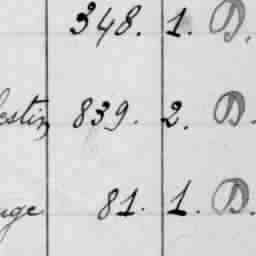 348. 1. D.
estin 839. 2. D.
uge 81. 1. D.